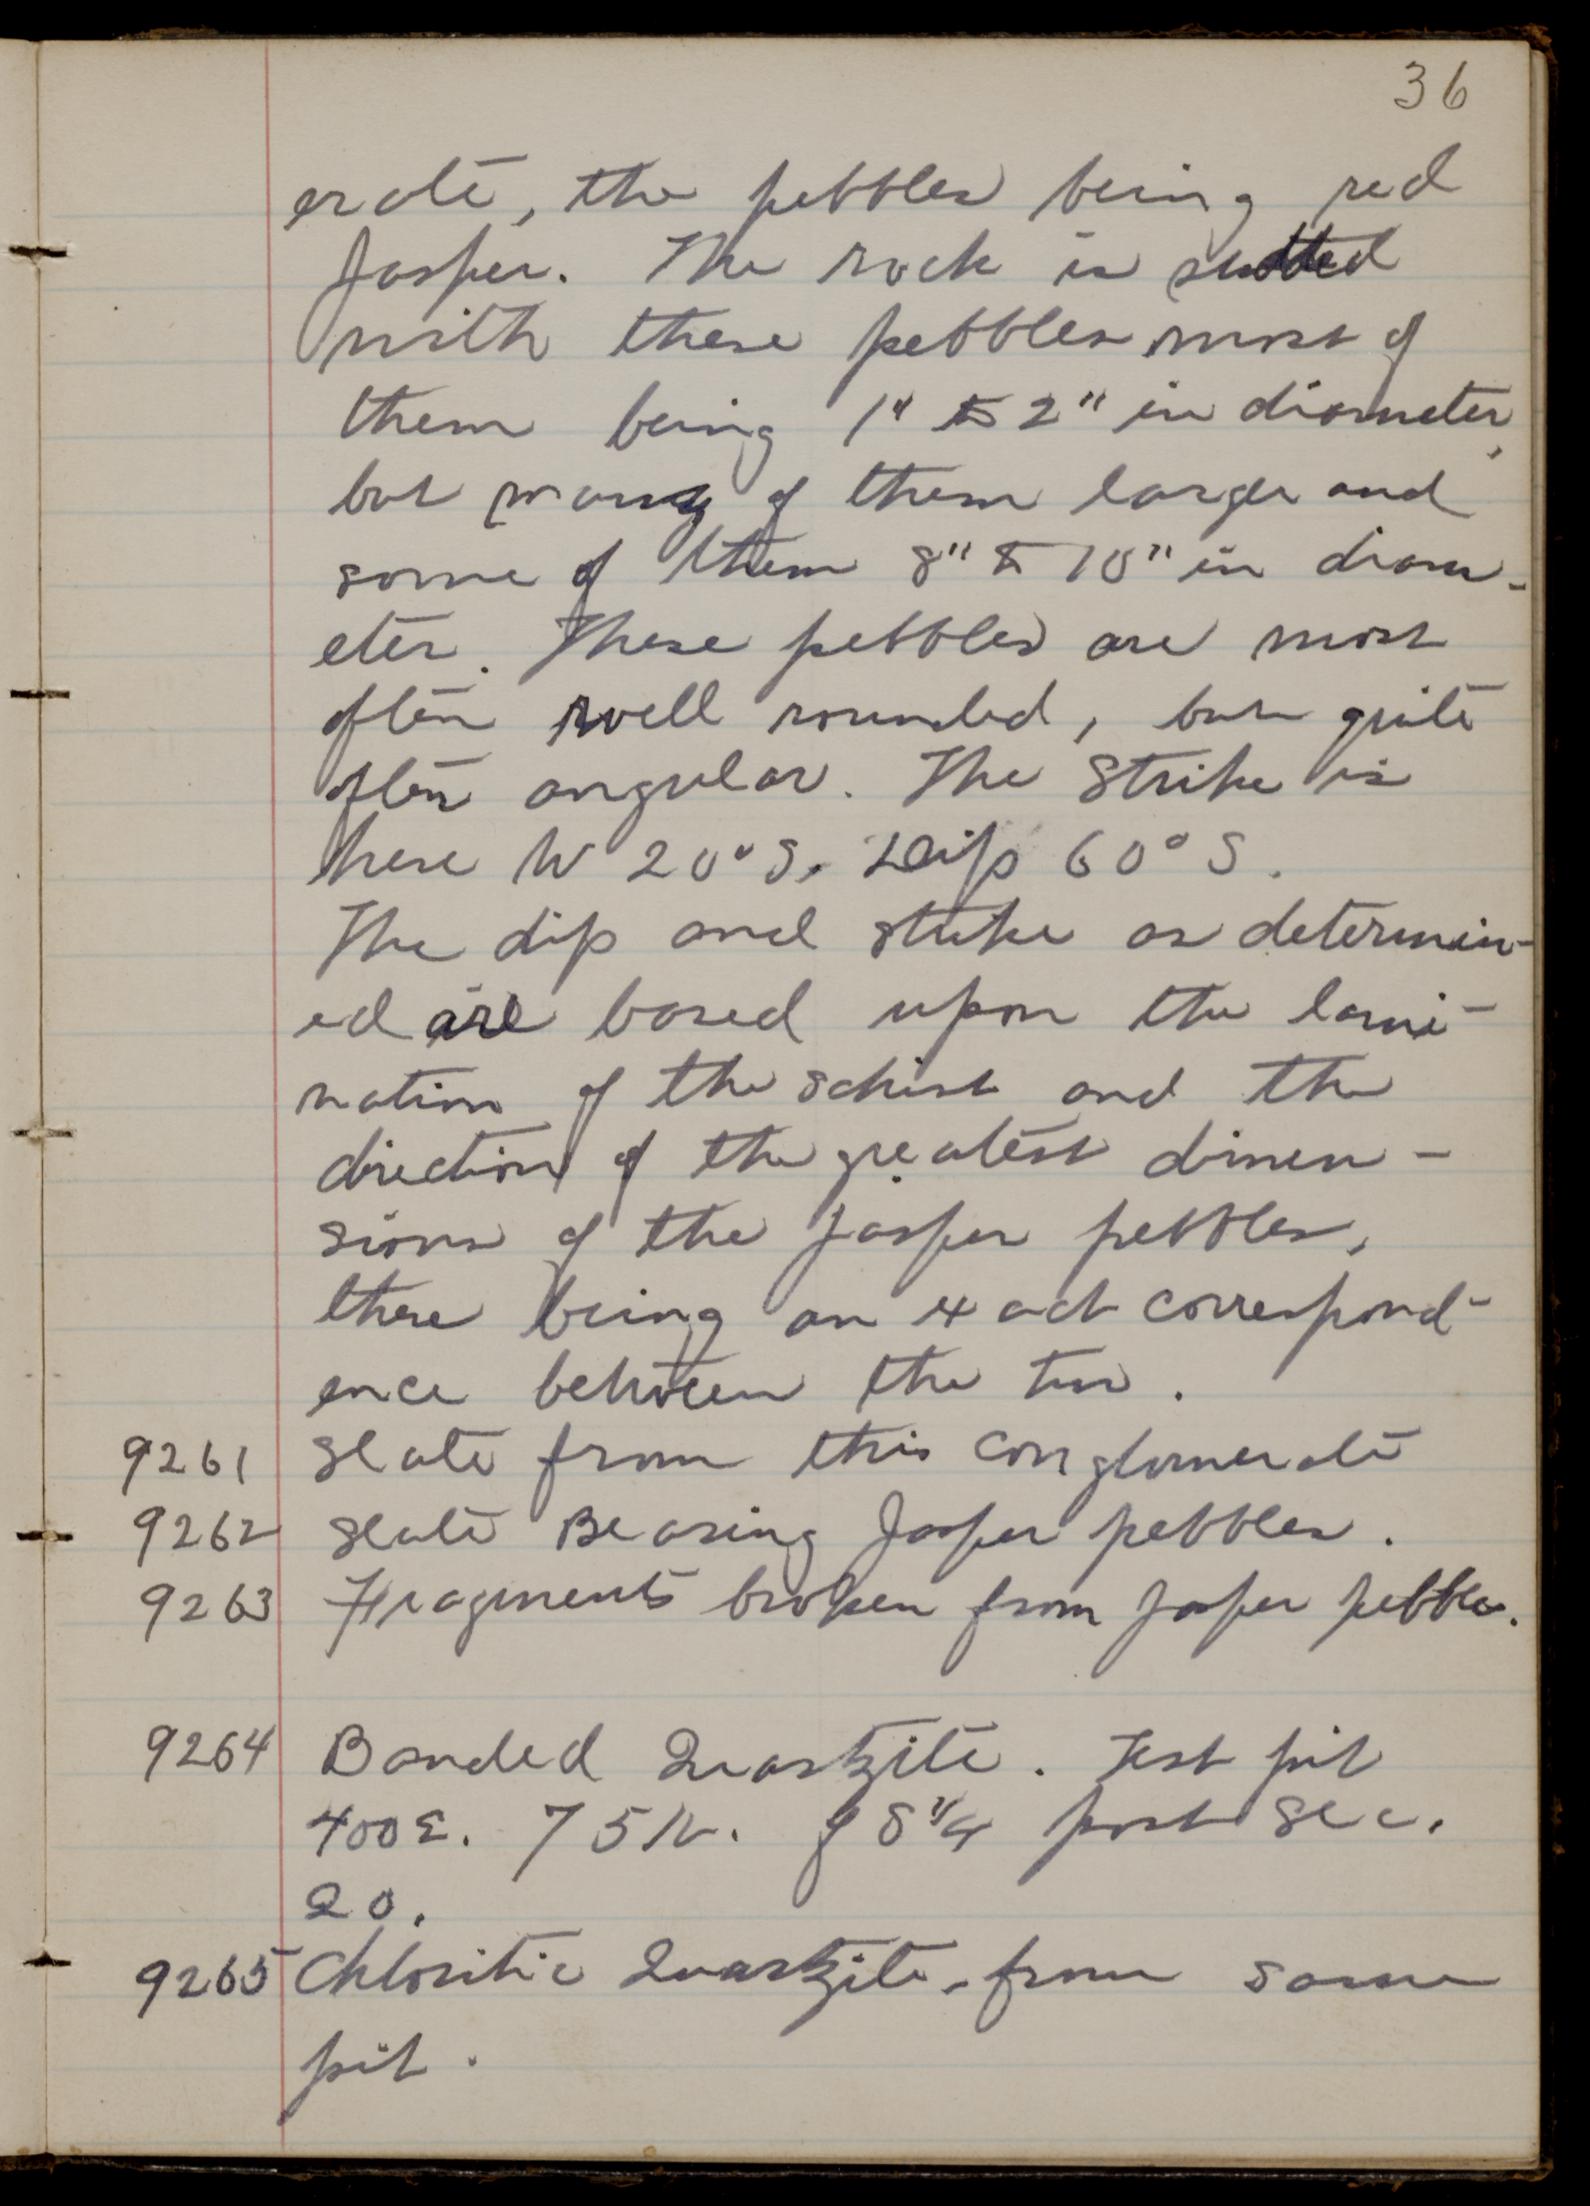 36
erate, the pebbles being red
Jasper. The rock is studded
with these pebbles most of
them being 1" to 2" in diameter,
but many of them larger and
some of them 8" to 10" in diam-
eter. These pebbles are most
often well rounded, but quite
often angular. The Strike is
here W 20° S. Dip 60° S.
The dip and strike as determin-
ed are based upon the lami-
nation of the schist and the
direction of the greatest dimen-
sions of the Jasper pebbles,
there being an exact correspond-
ence between the two.
9261 Slate from this conglomerate
9262 Slate Bearing Jasper pebbles.
9263 Fragments broken from Jasper pebbles.
9264 Banded Quartzite. Test pit
400 E. 75 N. of S 1/4 post Sec.
20.
9265 Chloritic Quartzite from same
pit.